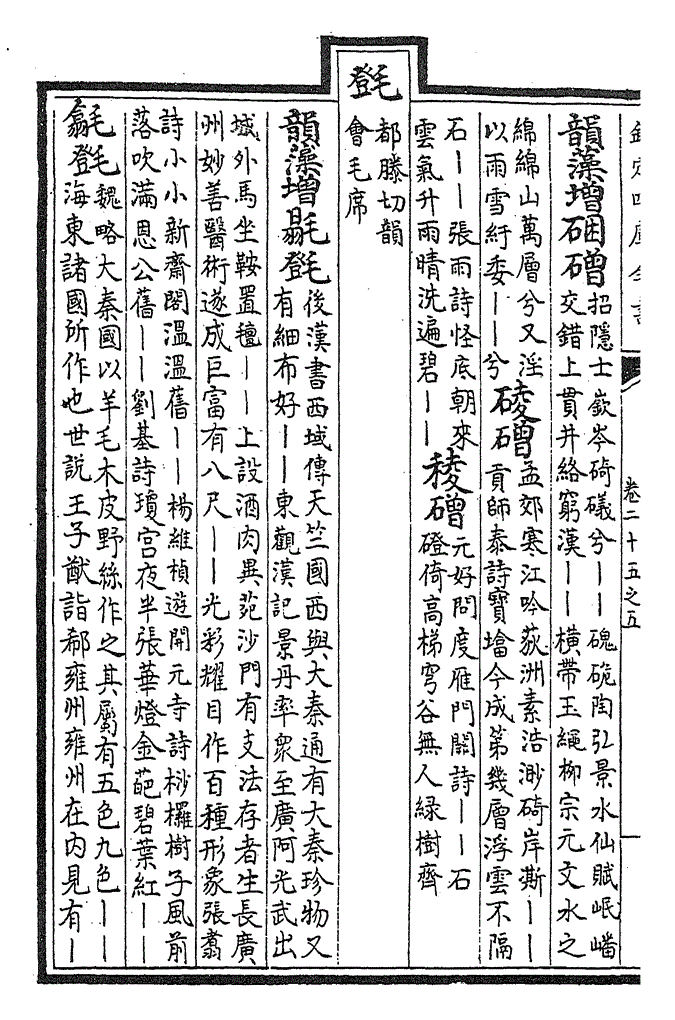 欽定四庫全書
卷二十五之五
韻藻增硱磳
招隱士嶔岑碕礒兮——磈硊陶弘景水仙賦岷嶓
交錯上貫井絡窮漢——横帶玉繩柳宗元文水之
綿綿山萬層兮又淫
以雨雪紆委——兮
碐磳
孟郊寒江吟荻洲素浩渺碕岸澌——
貢師泰詩寶墖今成第幾層浮雲不隔
石——張雨詩怪底朝來
雲氣升雨晴洗遍碧——
稜磳
元好問度雁門關詩——石
磴倚高梯穹谷無人緑樹齊
㲪
都滕切韻
會毛席
韻藻增毾㲪
後漢書西域傳天竺國西與大秦通有大秦珍物又
有細布好——東觀漢記景丹率衆至廣阿光武出
城外馬坐鞍置氊——上設酒肉異苑沙門有支法存者生長廣
州妙善醫術遂成巨富有八尺——光彩耀目作百種形象張翥
詩小小新齋閣溫溫舊——楊維楨遊開元寺詩桫欏樹子風前
落吹滿恩公舊——劉基詩瓊宫夜半張華燈金葩碧葉紅——
㲩㲪
魏略大秦國以羊毛木皮野絲作之其屬有五色九色——
海東諸國所作也世說王子猷詣郗雍州雍州在内見有—